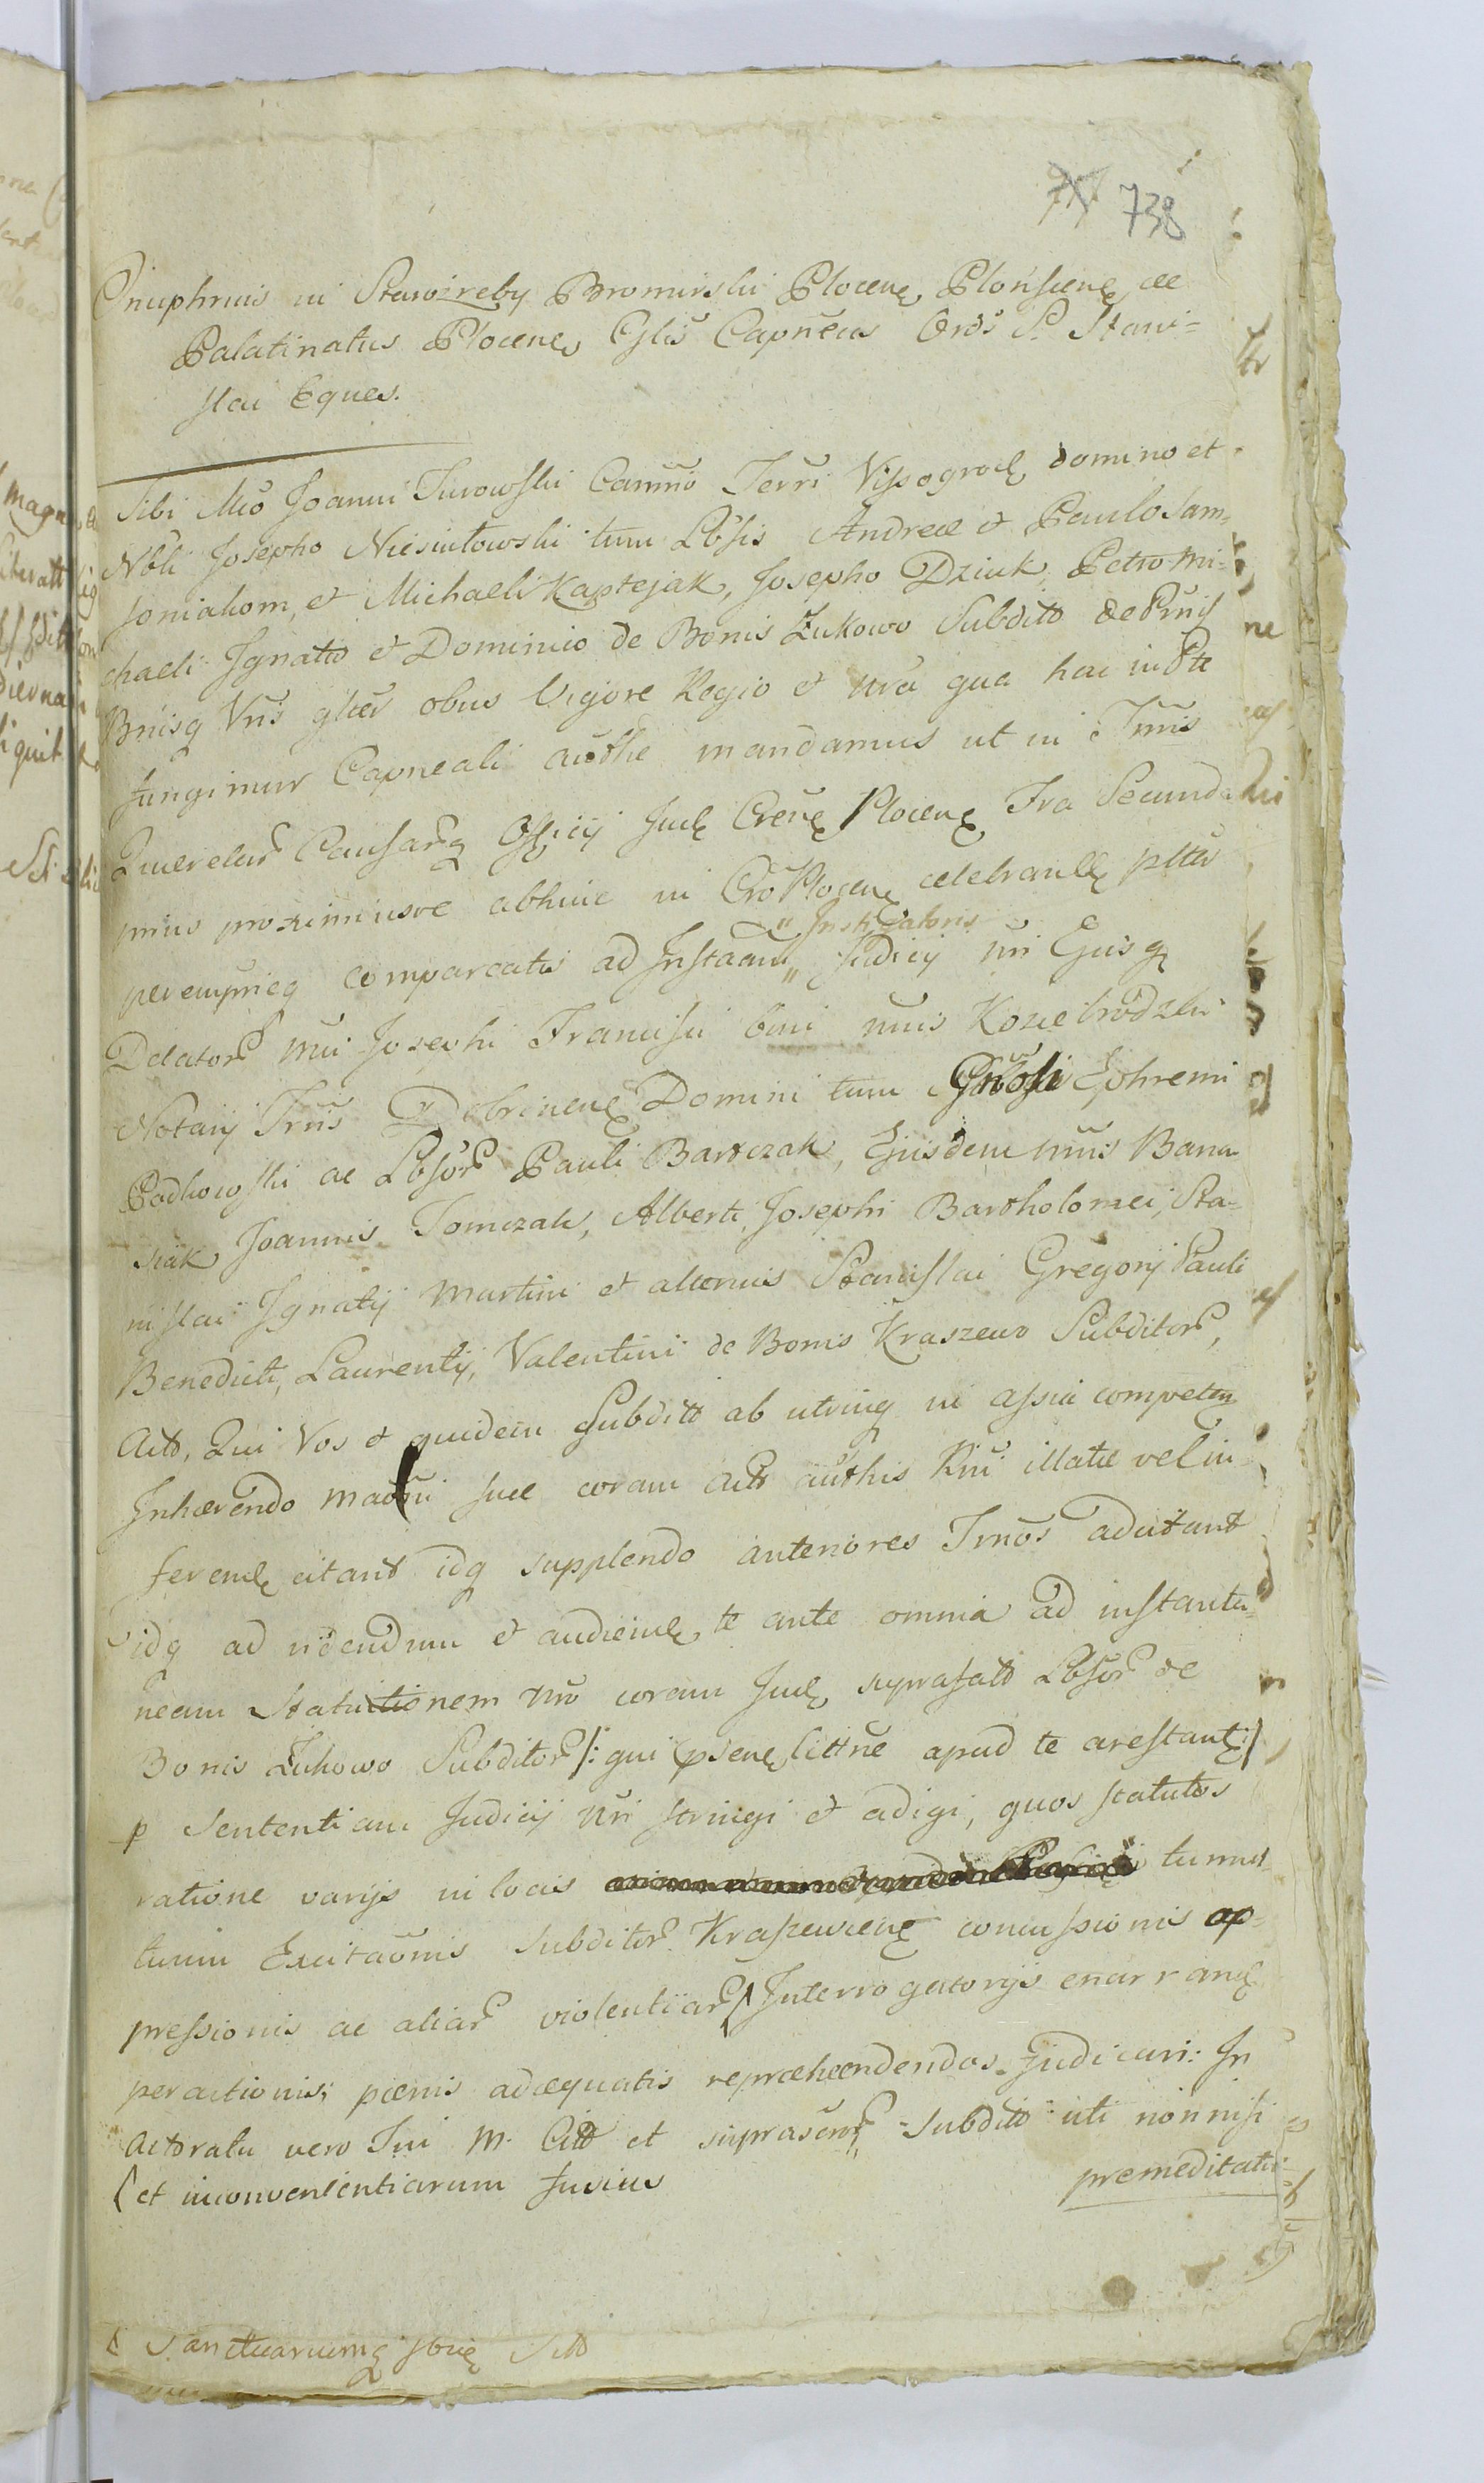 738
Onuphrius in Stawireby Bromirski Plocen, Plonscen, ac
Palatinatus Plocen, Glis Capneus Ords S. Stani=
slai Eques.
Tibi Mco Joanni Turowski Camrio Terri Vissogrod, domino et
Nbli Josepho Niesiułowski tum Lbsis Andreæ et Paulo Sam=
soniakom, et Michaeli Kaptejak, Josepho Dziuk, Petro Mi=
chaeli Ignatio et Dominico de Bonis Zukowo Subditt de Prnis
Bnisq Vris gltr obus Vigore Regio et nra qua hac in Pte
fungimur Capneali authte mandamus ut in Trnis
Querelar Causarq Officij Jud Cren Plocen, Fra Secunda
prius proximiusve abhinc in Cro Plocen celebrand pltr
peremprieq compareatis ad Instaam
" Instigatoris
" Judicij nri Ejusq
Delator Mci Josephi Francisci bini nnis Koziebrodzki
Notarij Trris Dobrinen Domini tum Gnosi Ephremi
Podkowski ac Lbsor Pauli Bartczak, Ejusdem nnis Bana
siak Joannis Tomczak, Alberti, Josephi Bartholomei, Sta=
nislai Ignatij Martini et alterius Stanislai Gregorij Pauli
Benedicti, Laurentij, Valentini de Bonis Kraszewo Subditor,
Actt, Qui Vos et quidem Subditt ab utrinq in assia competen
Inhærendo maoni suæ coram Actt authis Kni illatæ vel in=
ferend citant idq supplendo anteriores Trnos adcitant
idq ad videndum et audiend, te ante omnia ad instanta=
neam Statutionem nro coram Jud suprafatt Lbsor de
Bonis Zukowo Subditor /: qui psenc littne apud te arestant :/
p Sententiam Judicij Nri stringi et adigi, quos statutos
ratione varijs in locis tumul
tuum Excitaonis Subditor Kraszewcen concussionis op=
pressionis ac aliar violentiar / Interrogatorijs enarrand
peractionis; pœnis adæquatis repræhendendos Judicari: In
Actoratu vero Tui M. Citt et suprascrpr Subditt uti nonnisi
( et inconvenientiarum fusius
premeditatu
Sanctuariumq